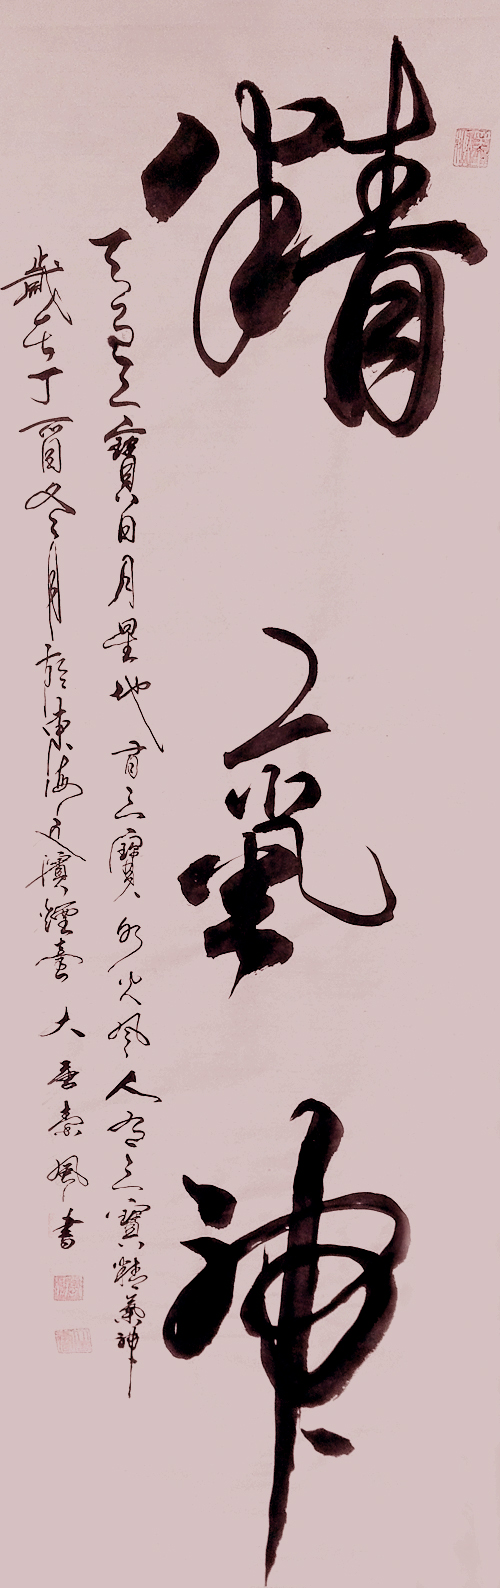 精氣神
天有三寶日月星地有三寶水火風人有三寶精氣神
歲在丁酉冬月於東海之濱煙臺大風書